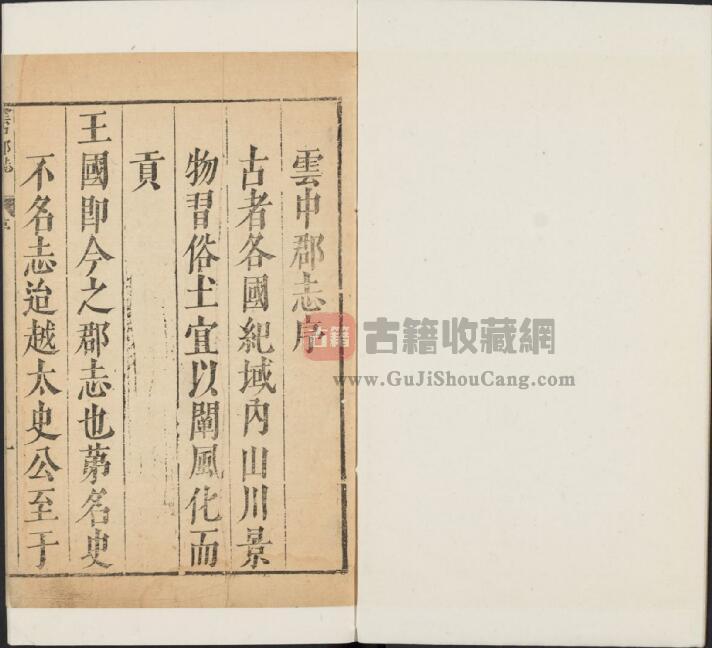 雲中郡志序
古者各國紀域內山川景
物習俗土宜以闡風化而
貢
王國即今之郡志也苐名史
不名志迨越太史公至于
古籍 古籍收藏網
www.GuJiShouCang.com